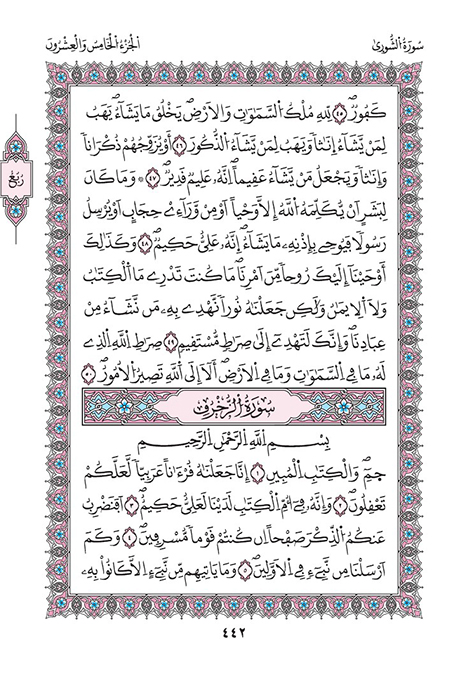 سُورَةُ الشُّورىٰ
الجُزءُ الْخَامِسُ وَالْعِشْرُونَ
كَفُورٌۖ ٤٥ لِّلهِ مُلْكُ السَّمَٰوَٰتِ وَالَارْضِۖ يَخْلُقُ مَا يَشَآءُۖ يَهَبُ
لِمَنْ يَّشَآءُ إِنَٰثاً وَيَهَبُ لِمَنْ يَّشَآءُ الذُّكُورَ ٤٦ أَوْ يُزَوِّجُهُمْ ذُكْرَاناً
وَإِنَٰثاً وَيَجْعَلُ مَنْ يَّشَآءُ عَقِيماًۖ اِنَّهُۥ عَلِيمٌ قَدِيرٌۖ ٤٧ وَمَا كَانَ
لِبَشَرٍ اَنْ يُّكَلِّمَهُ اللَّهُ إِلَّا وَحْياً اَوْ مِنْ وَّرَآءِےْ حِجَابٍ اَوْ يُرْسِلُ
رَسُولاً فَيُوحِے بِإِذْنِهِۦ مَا يَشَآءُۖ اِنَّهُۥ عَلِيٌّ حَكِيمٌۖ ٤٨ وَكَذَٰلِكَ
أَوْحَيْنَآ إِلَيْكَ رُوحاً مِّنَ اَمْرِنَاۖ مَا كُنتَ تَدْرِے مَا اَلْكِتَٰبُ
وَلَا اَلِايمَٰنُ وَلَٰكِن جَعَلْنَٰهُ نُوراً نَّهْدِے بِهِۦ مَن نَّشَآءُ مِنْ
عِبَادِنَاۖ وَإِنَّكَ لَتَهْدِےٓ إِلَىٰ صِرَٰطٍ مُّسْتَقِيمٍ ٤٩ صِرَٰطِ اِللَّهِ اِلذِے
لَهُۥ مَا فِے السَّمَٰوَٰتِ وَمَا فِے الَارْضِۖ أَلَآ إِلَى اَللَّهِ تَصِيرُ الُامُورُۖ ٥٠
سُورَةُ الزُّخْرُفِ
بِسْمِ اللَّهِ الرَّحْمَٰنِ الرَّحِيمِ
حَمِٓۖ وَالْكِتَٰبِ اِلْمُبِينِ ١ إِنَّا جَعَلْنَٰهُ قُرْءَٰناً عَرَبِيّاً لَّعَلَّكُمْ
تَعْقِلُونَۖ ٢ وَإِنَّهُۥ فِےٓ أُمِّ اِلْكِتَٰبِ لَدَيْنَا لَعَلِيٌّ حَكِيمٌۖ ٣ اَفَنَضْرِبُ
عَنكُمُ الذِّكْرَ صَفْحاً اِن كُنتُمْ قَوْماً مُّسْرِفِينَۖ ٤ وَكَمَ
اَرْسَلْنَا مِن نَّبِےٓءٍ فِے الَاوَّلِينَۖ ٥ وَمَا يَاتِيهِم مِّن نَّبِےٓءٍ اِلَّا كَانُواْ بِهِۦ
رُبُع
٤٤٢